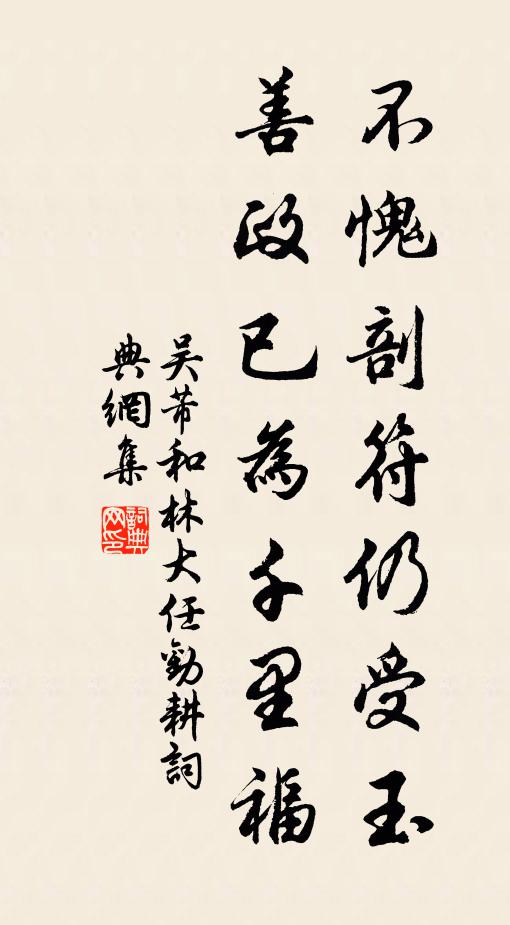 不愧剖符仍受玉
善政已為千里福
吴芾和林大任勸耕詞
典網集
詞典网印